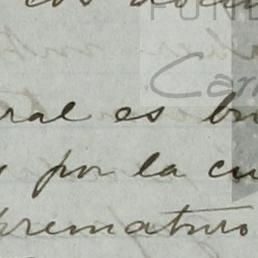 FUND
Car
ral es bu
y por la cu
prematuro